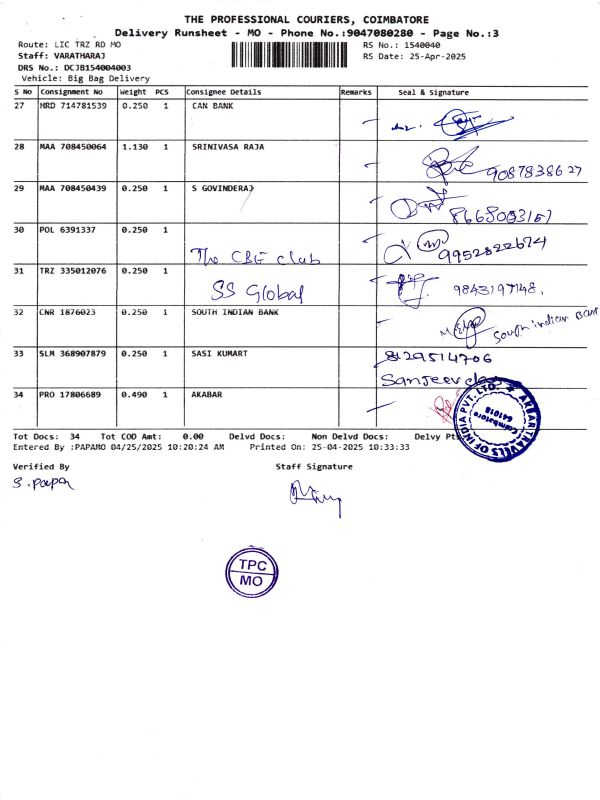 THE PROFESSIONAL COURIERS, COIMBATORE
Delivery Runsheet - MO - Phone No.:9047080280 - Page No.:3
Route: LIC TRZ RD MO
RS No.: 1540040
Staff: VARATHARAJ
RS Date: 25-Apr-2025
DRS No.: DCJB154004003
Vehicle: Big Bag Delivery
S No Consignment No Weight PCS Consignee Details Remarks Seal & Signature
27 HRD 714781539 0.250 1 CAN BANK
28 MAA 708450064 1.130 1 SRINIVASA RAJA
9087838627
29 MAA 708450439 0.250 1 S GOVINDERAJ
8668003167
30 POL 6391337 0.250 1
The CBE club
9952822674
31 TRZ 335012076 0.250 1
SS Global
9843197148.
32 CNR 1876023 0.250 1 SOUTH INDIAN BANK
South indian Bank
33 SLM 368907879 0.250 1 SASI KUMART
8129514706
Sanjeev
34 PRO 17806689 0.490 1 AKABAR
AKBAR TRAVELS OF INDIA PVT. LTD.
Coimbatore
641018
Tot Docs: 34 Tot COD Amt: 0.00 Delvd Docs: Non Delvd Docs: Delvy
Entered By :PAPAMO 04/25/2025 10:20:24 AM Printed On: 25-04-2025 10:33:33
Verified By
Staff Signature
S. papa
TPC
MO